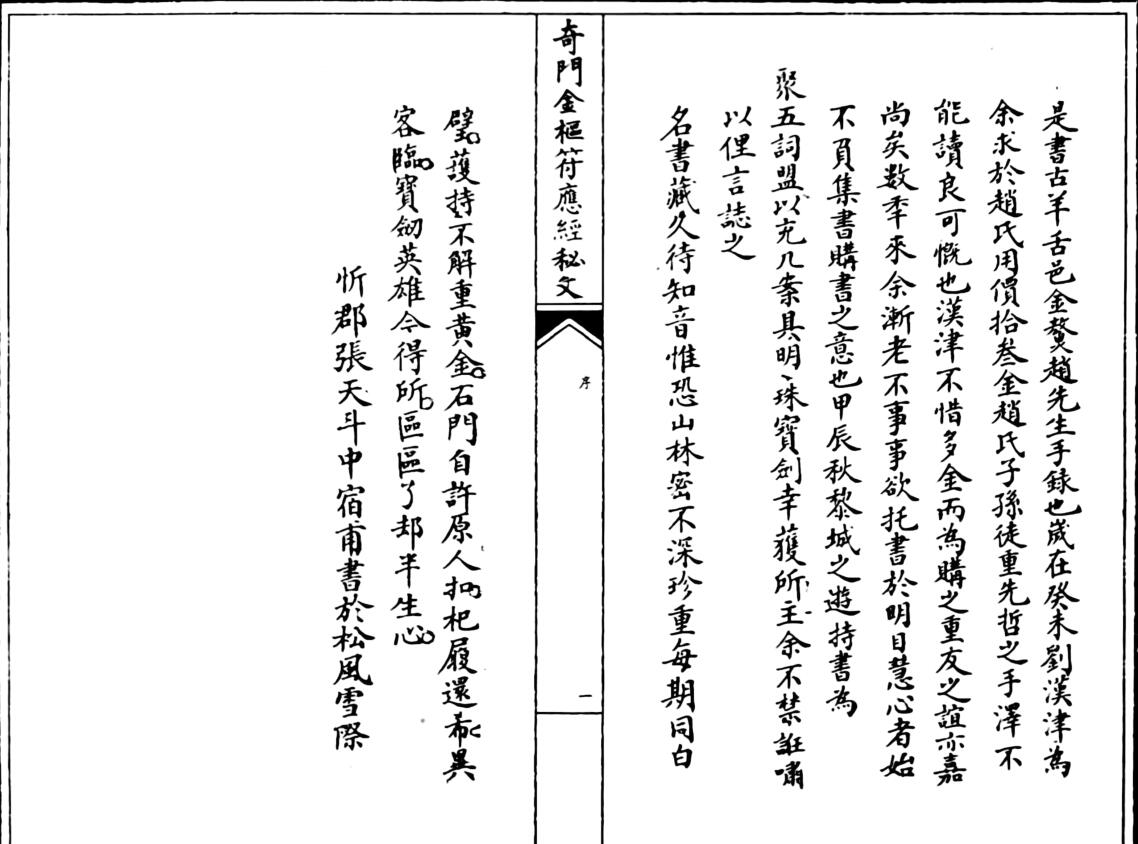 是書古羊舌邑金鰲趙先生手録也歲在癸未劉漢津為
余求於趙氏用價拾叁金趙氏子孫徒重先哲之手澤不
能讀良可慨也漢津不惜多金而為購之重友之誼亦嘉
尚矣数年來余漸老不事事欲托書於明目慧心者始
不負集書購書之意也甲辰秋黎城之遊持書為
聚五詞盟以充几案具明珠寶劍幸獲所主余不禁誑嘯
以俚言誌之
名書藏久待知音惟恐山林密不深珍重每期同白
璧護持不解重黄金石門自許原人扣杞履還希異
客臨寶劒英雄今得所區區了却半生心
忻郡張天斗中宿甫書於松風雪際
奇門金樞符應經秘文
序
一